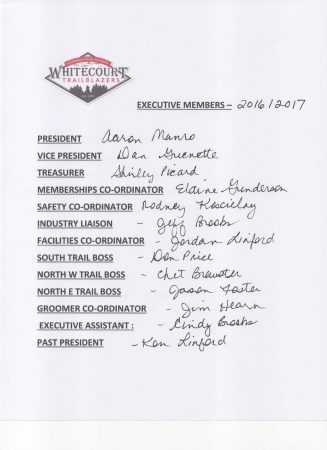 WHITECOURT
TRAILBLAZERS
EXECUTIVE MEMBERS – 2016/2017
PRESIDENT Aaron Munro
VICE PRESIDENT Dan Guenette
TREASURER Shirley Picard
MEMBERSHIPS CO-ORDINATOR Elaine Gunderson
SAFETY CO-ORDINATOR Rodney Koscielny
INDUSTRY LIAISON - Jeff Brooks
FACILITIES CO-ORDINATOR - Jordan Linford
SOUTH TRAIL BOSS - Don Price
NORTH W TRAIL BOSS - Chet Brewster
NORTH E TRAIL BOSS - Jason Foster
GROOMER CO-ORDINATOR - Jim Hearn
EXECUTIVE ASSISTANT : - Cindy Brooks
PAST PRESIDENT - Ken Linford